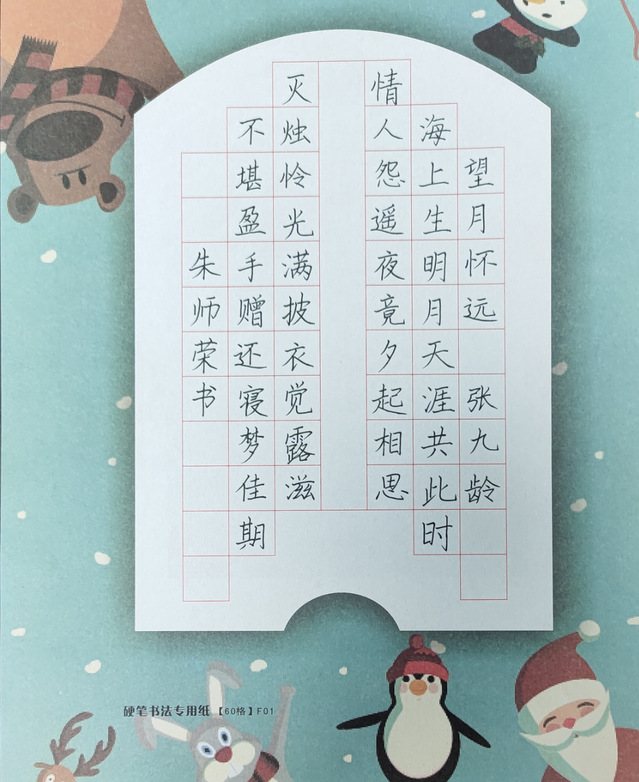 望月怀远 张九龄
海上生明月天涯共此时
情人怨遥夜竟夕起相思
灭烛怜光满披衣觉露滋
不堪盈手赠还寝梦佳期
朱师荣书
硬笔书法专用纸【60格】F01